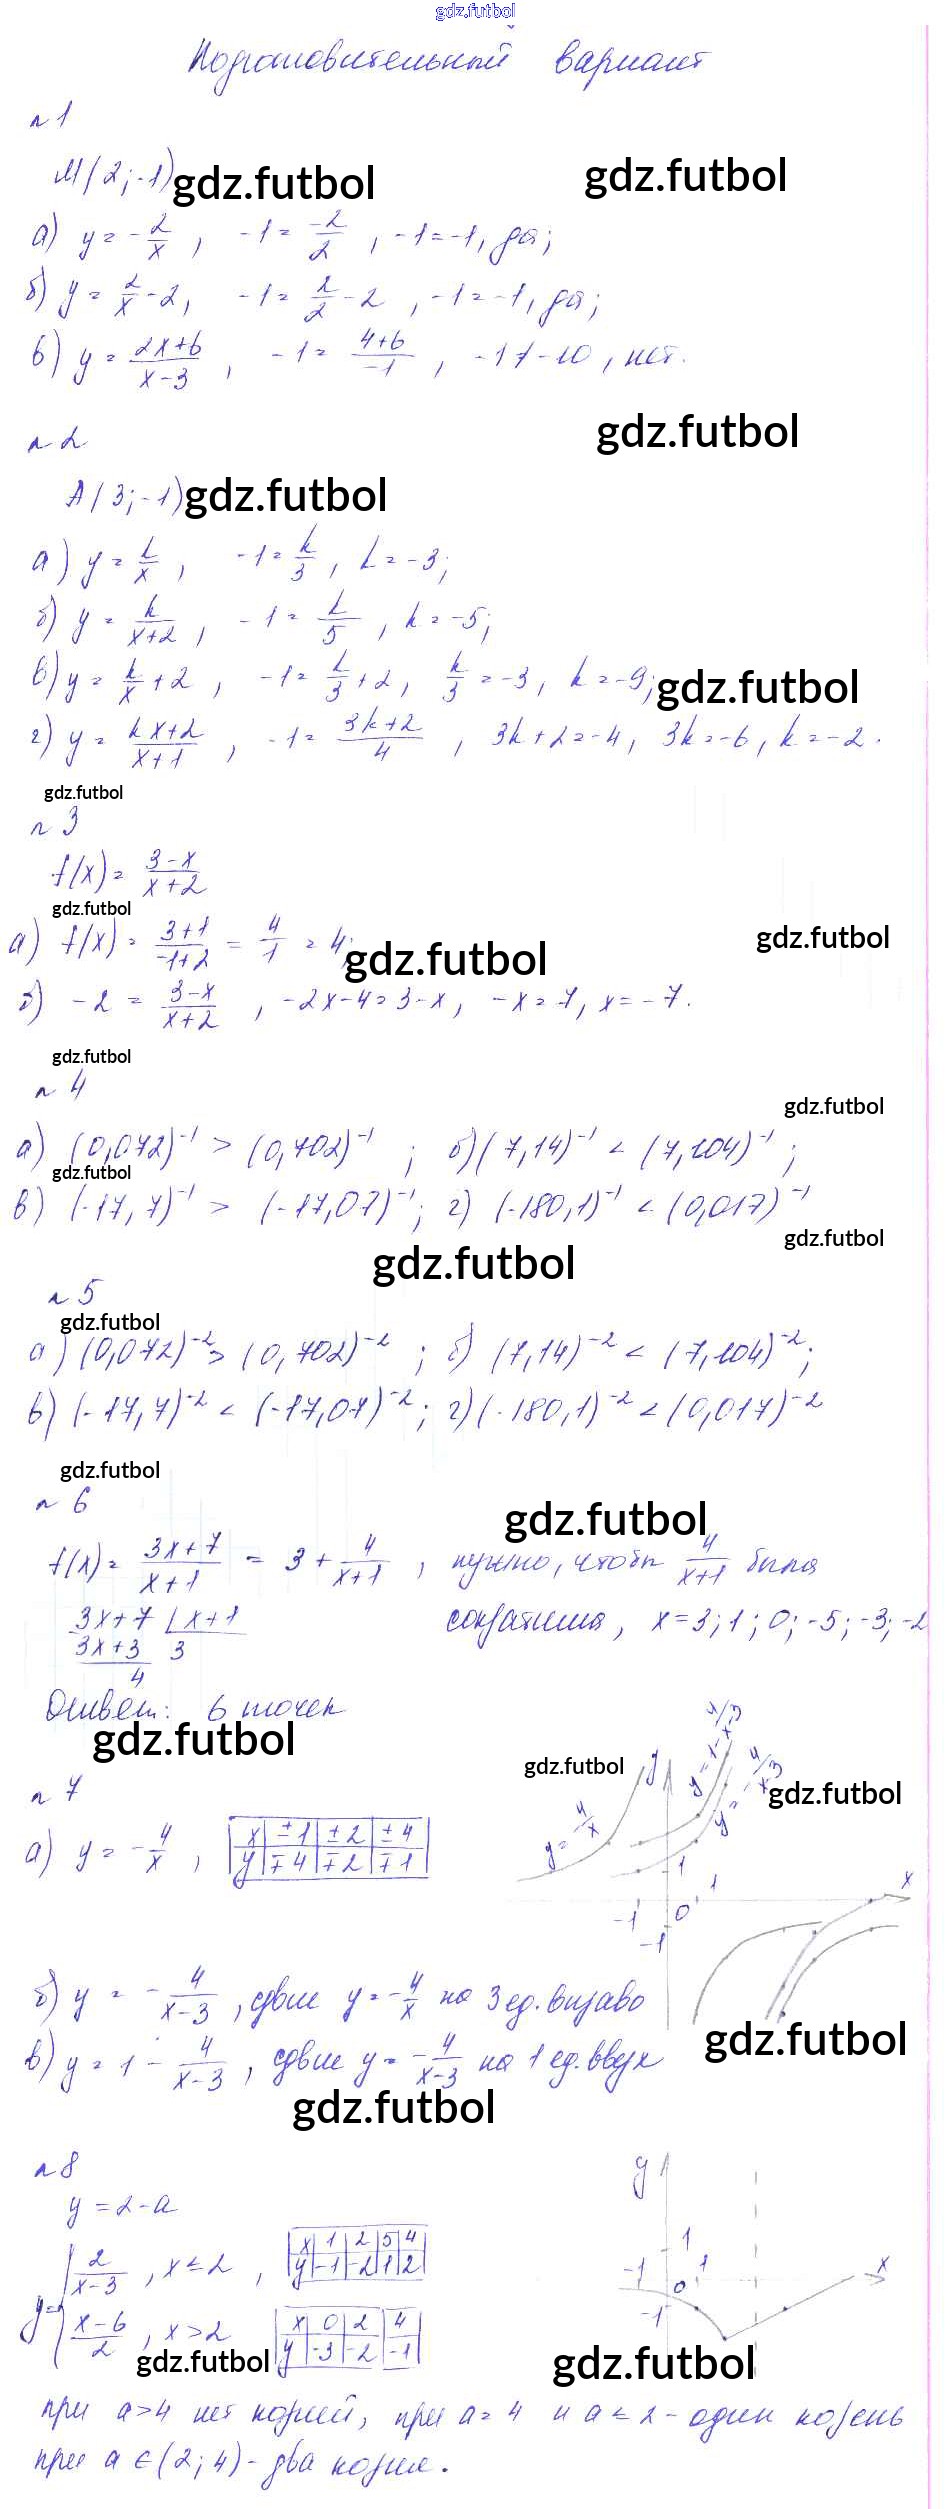 gdz.futbol
Подготовительный вариант
n 1
M(2;-1) gdz.futbol gdz.futbol
а) y = -2/x, -1 = -2/2, -1=-1, да;
б) y = 2/x - 2, -1 = 2/2 - 2, -1=-1, да;
в) y = (2x+6)/(x-3), -1 = (4+6)/(-1), -1≠-10, нет.
gdz.futbol
n 2
A(3;-1) gdz.futbol
а) y = k/x, -1 = k/3, k=-3;
б) y = k/(x+2), -1 = k/5, k=-5;
в) y = k/x + 2, -1 = k/3 + 2, k/3 = -3, k=-9; gdz.futbol
г) y = (kx+2)/(x+1), -1 = (3k+2)/4, 3k+2=-4, 3k=-6, k=-2.
gdz.futbol
n 3
f(x) = (3-x)/(x+2)
gdz.futbol
а) f(x) = (3+1)/(-1+2) = 4/1 = 4; gdz.futbol gdz.futbol
б) -2 = (3-x)/(x+2), -2x-4=3-x, -x=7, x=-7.
gdz.futbol
n 4
gdz.futbol
а) (0,072)⁻¹ > (0,702)⁻¹; б) (7,14)⁻¹ < (7,104)⁻¹;
gdz.futbol
в) (-17,7)⁻¹ > (-17,07)⁻¹; г) (-180,1)⁻¹ < (0,017)⁻¹
gdz.futbol
gdz.futbol
n 5
gdz.futbol
а) (0,072)⁻² > (0,702)⁻²; б) (7,14)⁻² < (7,104)⁻²;
в) (-17,7)⁻² < (-17,07)⁻²; г) (-180,1)⁻² < (0,017)⁻²
gdz.futbol
n 6
gdz.futbol
f(x) = (3x+7)/(x+1) = 3 + 4/(x+1), нужно, чтобы 4/(x+1) была
3x+7 | x+1
сократима, x=3; 1; 0; -5; -3; -2
3x+3 3
4
Ответ: 6 точек
gdz.futbol
gdz.futbol
n 7
gdz.futbol
а) y = -4/x, x ±1 ±2 ±4
y ∓4 ∓2 ∓1
y = -4/x
y = 1 - 4/(x-3)
y = -4/(x-3)
y 1 1 x
-1 0
-1
б) y = -4/(x-3), сдвиг y = -4/x на 3 ед. вправо
gdz.futbol
в) y = 1 - 4/(x-3), сдвиг y = -4/(x-3) на 1 ед. вверх
gdz.futbol
n 8
y = 2-a
y = { 2/(x-3), x≤2, x 1 2 5 4
y -1 -2 1 2
(x-6)/2, x>2 x 0 2 4
y -3 -2 -1
y
1
-1 0 1 x
-1
gdz.futbol gdz.futbol
при a>4 нет корней, при a=4 и a≤2 - один корень
при a∈(2;4) - два корня.